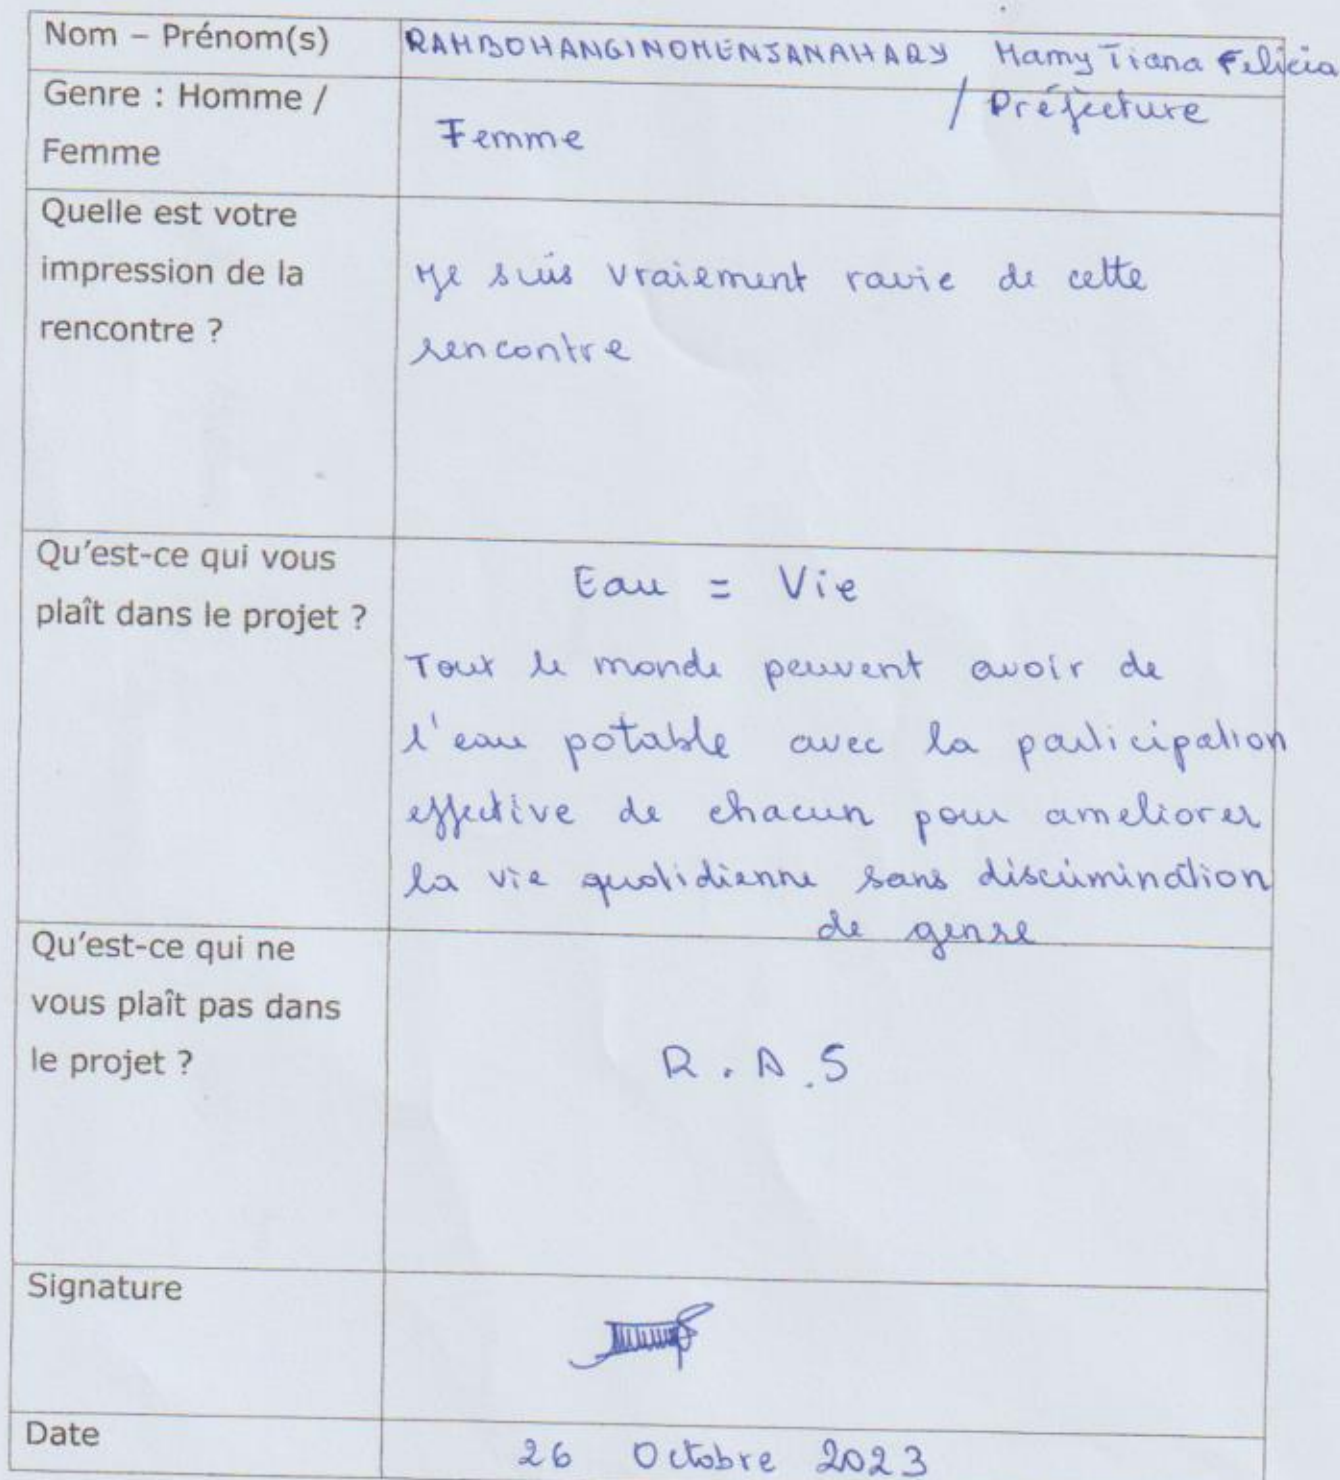 Nom – Prénom(s)
RAMBOHANGINOMENJANAHARY Mamy Tiana Felicia
/ Préfecture
Genre : Homme /
Femme
Femme
Quelle est votre
impression de la
rencontre ?
Je suis vraiement ravie de cette
rencontre
Qu'est-ce qui vous
plaît dans le projet ?
Eau = Vie
Tout le monde peuvent avoir de
l'eau potable avec la participation
effective de chacun pour ameliorer
la vie quotidienne sans discrimination
de genre
Qu'est-ce qui ne
vous plaît pas dans
le projet ?
R.A.S
Signature
Date
26 Octobre 2023